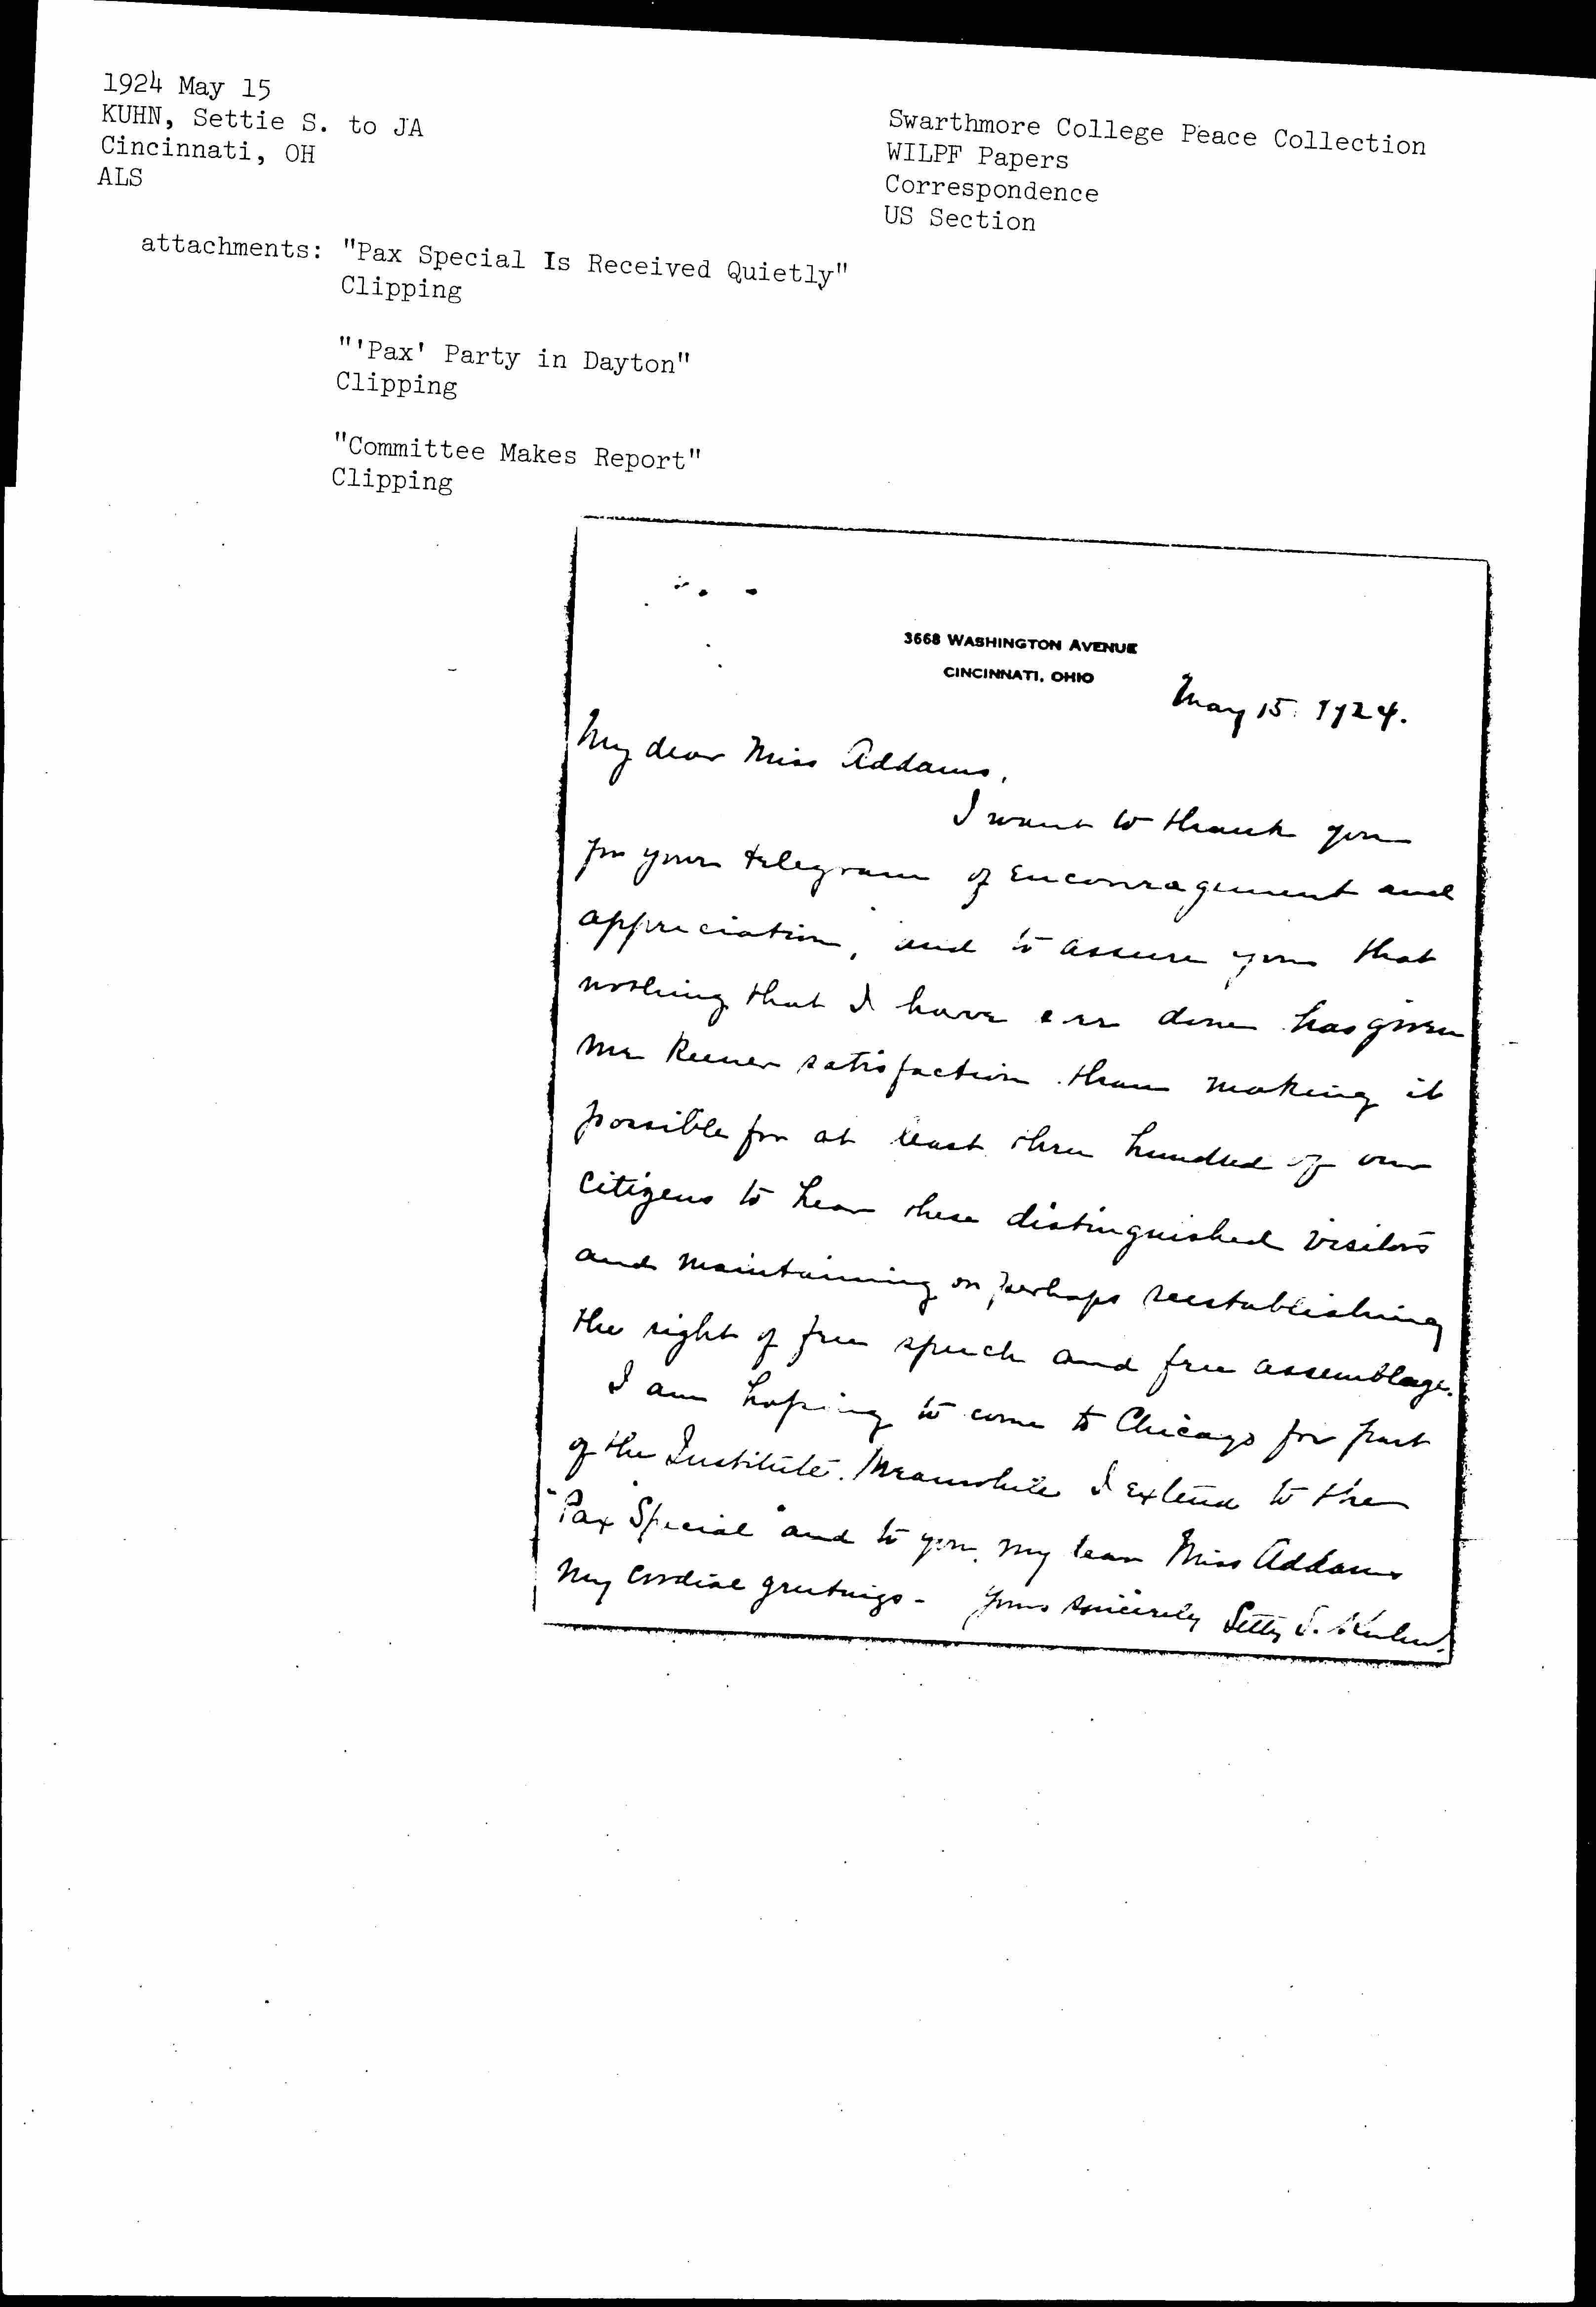 1924 May 15
KUHN, Settie S. to JA
Cincinnati, OH
ALS
Swarthmore College Peace Collection
WILPF Papers
Correspondence
US Section
attachments: "Pax Special Is Received Quietly"
Clipping
"'Pax' Party in Dayton"
Clipping
"Committee Makes Report"
Clipping
3668 WASHINGTON AVENUE
CINCINNATI, OHIO
May 15. 1924.
My dear Miss Addams,
I want to thank you
for your telegram of encouragement and
appreciation, and to assure you that
nothing that I have ever done has given
me keener satisfaction than making it
possible for at least three hundred of our
citizens to hear these distinguished visitors
and maintaining or perhaps reestablishing
the right of free speech and free assemblage.
I am hoping to come to Chicago for part
of the Institute. Meanwhile I extend to the
"Pax Special" and to you, my dear Miss Addams
my cordial greetings - Yours sincerely Setty S. Kuhn.